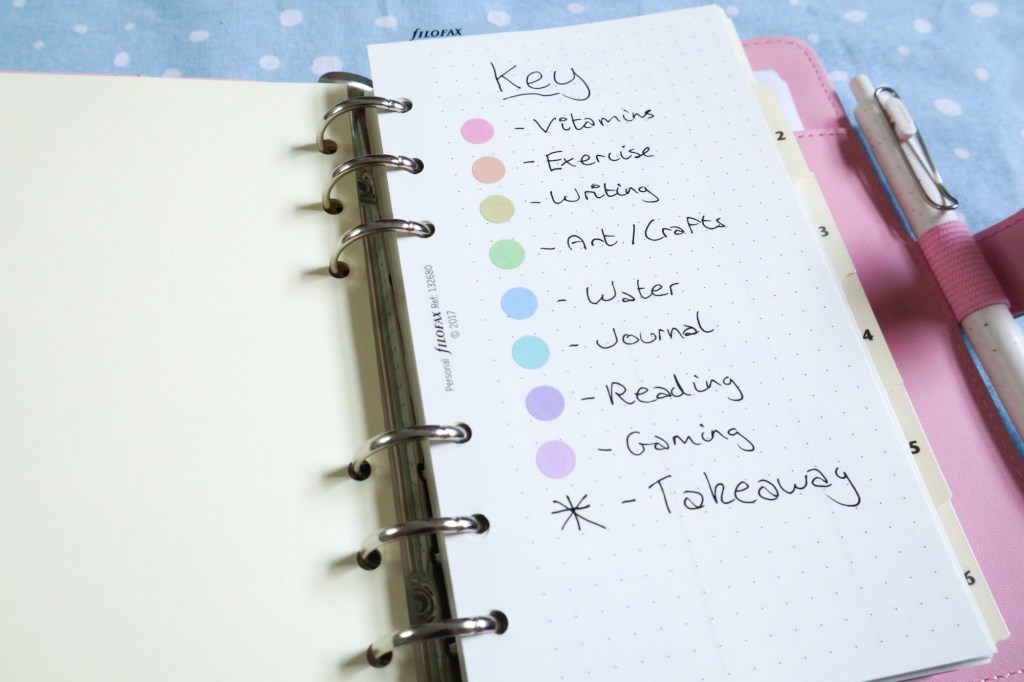 fILOFAX
Key
- Vitamins
- Exercise
- Writing
- Art / Crafts
- Water
- Journal
- Reading
- Gaming
- Takeaway
Personal fILOFAX Ref: 132680
© 2017
2
3
4
5
6